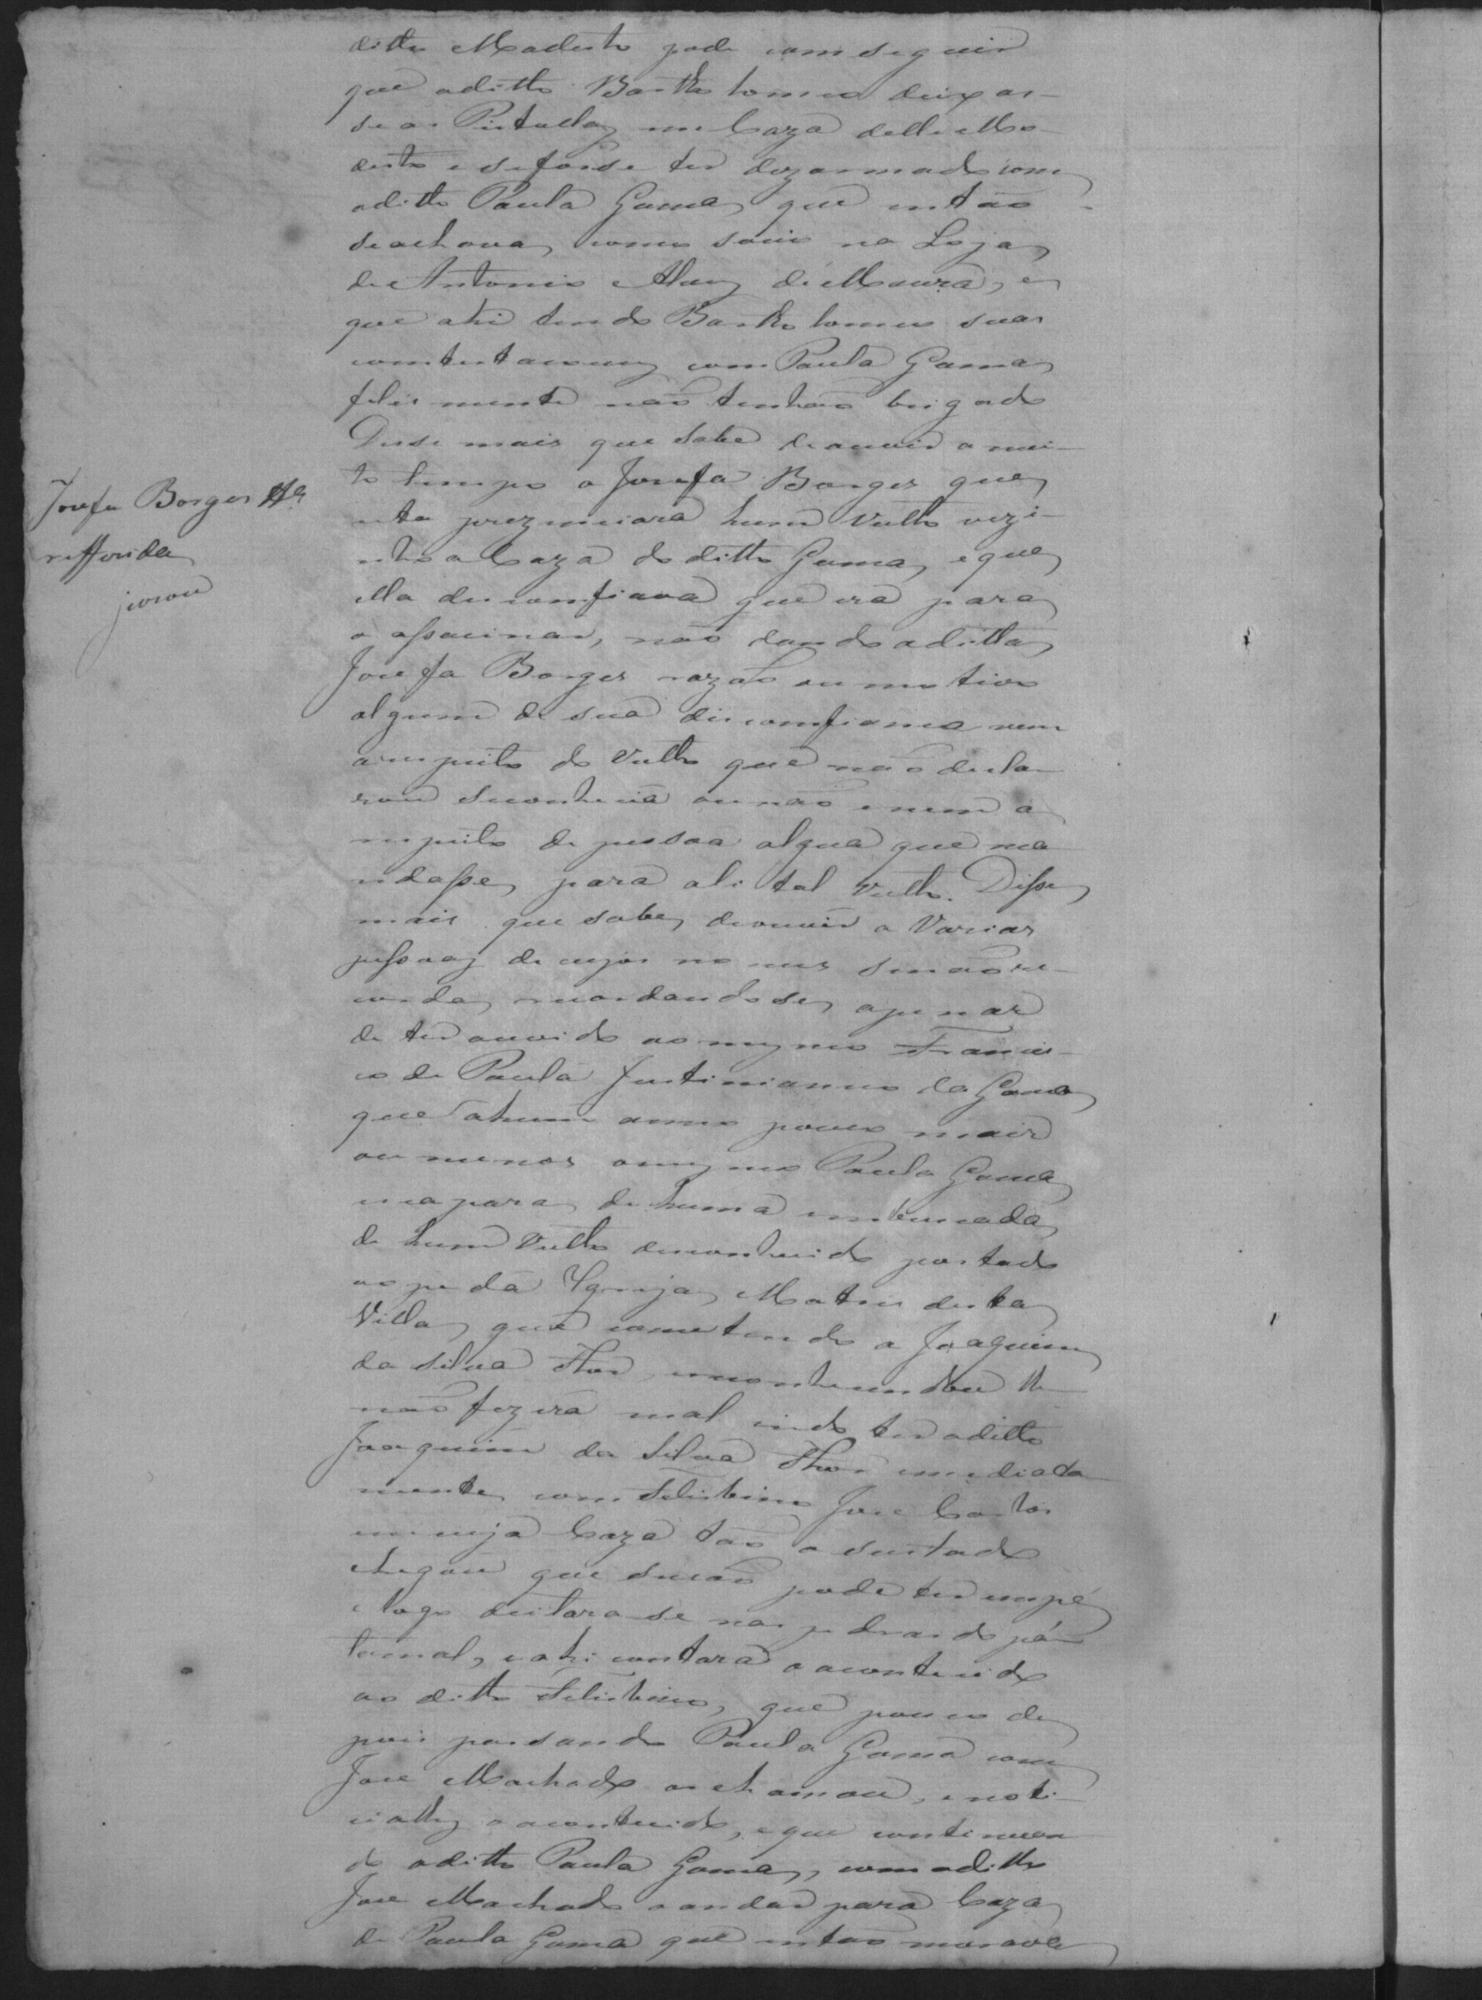 ditto Modesto pode comseguir
que aditto Bartholomeo deixas-
se as Pistollas em Caza delle Mo-
desto e sefosse ter dezarmado com
aditto Paula Gama, que então
seachava, como socio na Loja,
de Antonio Alves de Moura, e
que ahi tendo Bartholomeo suas
comtestacoens com Paula Gama,
felismente não tenhão brigado
Disse mais que sabe de ouvir a mui-
to tempo a Josefa Borges que,
esta prezenciara hum Vulto vezi-
nho a Caza do ditto Gama, e que,
ella descomfiava que era para
o assacinar, não dando aditta
Josefa Borges razão ou motivo
algum de sua discomfiança nem
arespeito do Vulto que não decla-
rou seconhecia ou não e nem a
respeito de pessoa algua que ma-
ndasse, para ali tal Vulto. Disse
mais que sabe, deouvir a Varias
pessoas de cujos nomes senão re-
corda, recordandose, apenas
de ter ouvido ao mesmo Francis-
co de Paula Justinianno da Gama,
que ahum anno pouco mais
ou menos omesmo Paula Gama
escapara de huma emboscada,
de hum Vulto desconhecido postado
ao pe da Ygreja, Matris desta
Villa, que cometendo a Joaquim
da Silva Flor, econhecendou lhe
não fizera mal indo ter aditto
Joaquim da Silva Flor imediata
mente, com Felisbino Jose Carlos
em cuja Caza tão asustado
chegou que senão pode ter empé
e logo deitarase nas pedras do pá-
tamal, e ahi contara o acontecido
ao ditto Felisbino, que pouco de
pois passando Paula Gama com
Jose Machado os chamou, e noti-
ciolhes o acontecido, e que continuan
do aditto Paula Gama, com aditto
Jose Machado a andar para Caza,
de Paula Gama que então morava
Josefa Borges Ta
refforida
jurou